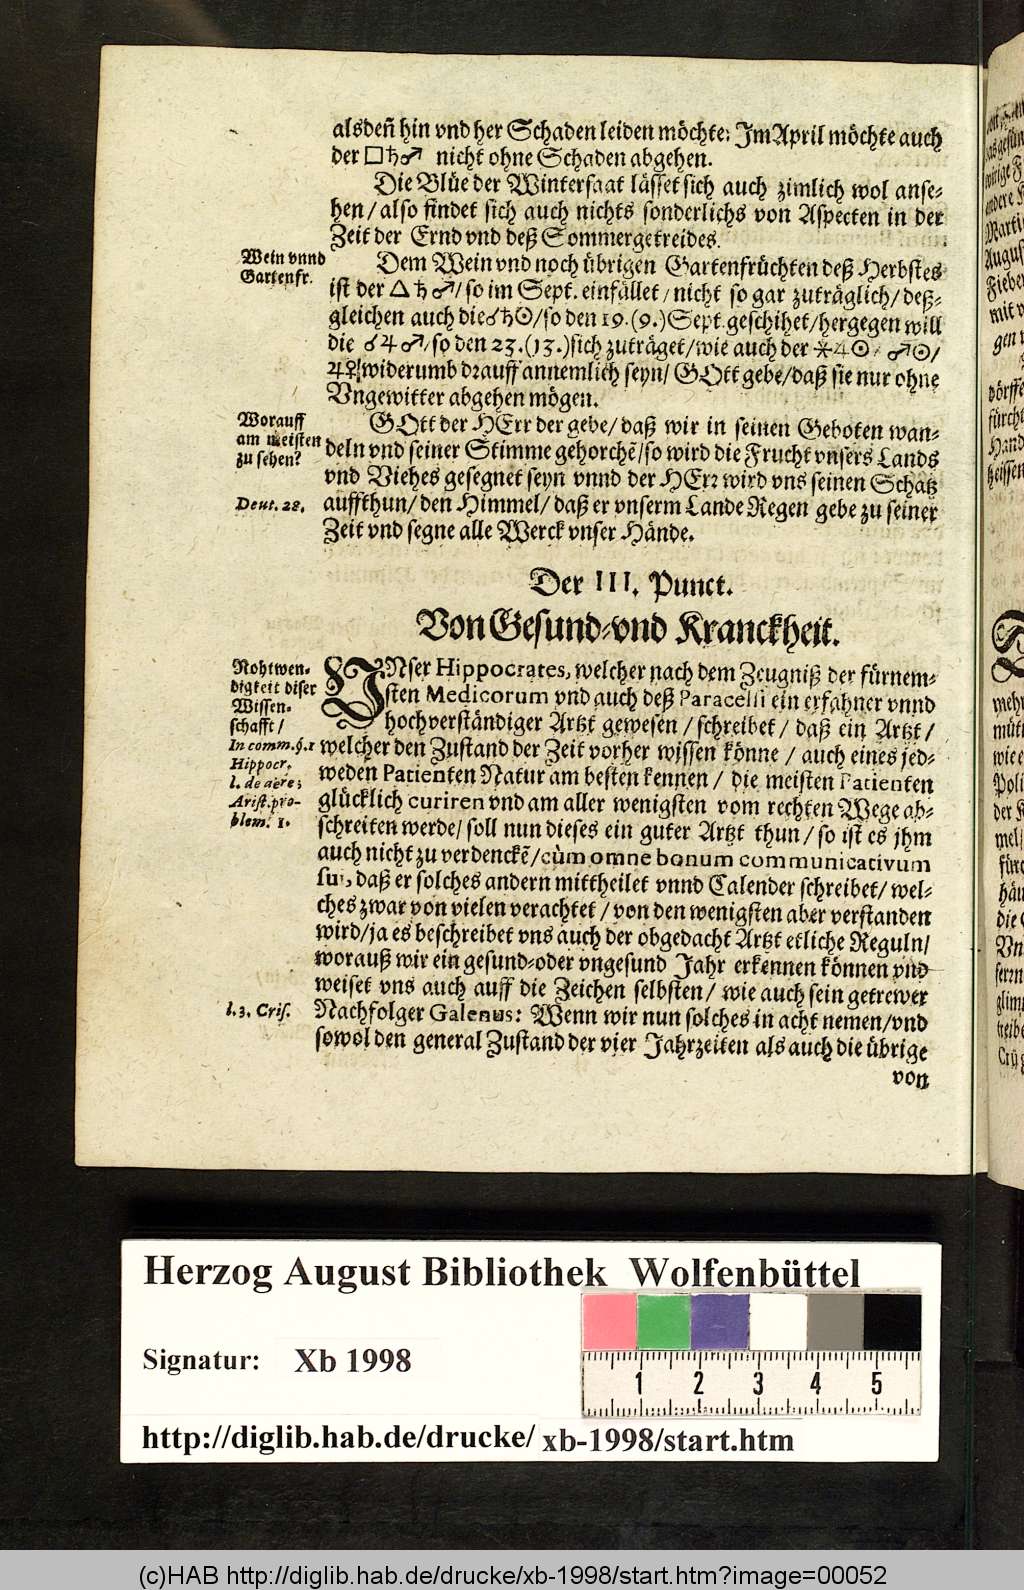 alsdeñ hin vnd her Schaden leiden möchte: Im April möchte auch
der □♄♂ nicht ohne Schaden abgehen.
Die Blüe der Wintersaat lässet sich auch zimlich wol anse-
hen/ also findet sich auch nichts sonderlichs von Aspecten in der
Zeit der Ernd vnd deß Sommergetreides.
Wein vnnd
Gartenfr.
Dem Wein vnd noch übrigen Gartenfrüchten deß Herbstes
ist der △ ♄ ♂/ so im Sept. einfället/ nicht so gar zuträglich/ deß-
gleichen auch die ☌♄☉/ so den 19. (9.) Sept. geschihet/ hergegen will
die ☌ ♃ ♂/ so den 23. (13.) sich zuträget/ wie auch der ⚹♃☉/ ♂☉/
♃♀/ widerumb drauff annemlich seyn/ GOtt gebe/ daß sie nur ohne
Vngewitter abgehen mögen.
Worauff
am meisten
zu sehen?
Deut. 28.
GOtt der HErr der gebe/ daß wir in seinen Geboten wan-
deln vnd seiner Stimme gehorchẽ/ so wird die Frucht vnsers Lands
vnd Viehes gesegnet seyn vnnd der HErr wird vns seinen Schatz
auffthun/ den Himmel/ daß er vnserm Lande Regen gebe zu seiner
Zeit vnd segne alle Werck vnser Hände.
Der III. Punct.
Von Gesund-vnd Kranckheit.
Nohtwen-
digkeit diser
Wissen-
schafft/
In comm. q. 1
Hippocr.
l. de aëre;
Arist. pro-
blem. 1.
VNser Hippocrates, welcher nach dem Zeugniß der fürnem-
sten Medicorum vnd auch deß Paracelsi ein erfahner vnnd
hochverständiger Artzt gewesen/ schreibet/ daß ein Artzt/
welcher den Zustand der Zeit vorher wissen könne/ auch eines jed-
weden Patienten Natur am besten kennen/ die meisten Patienten
glücklich curiren vnd am aller wenigsten vom rechten Wege ab-
schreiten werde/ soll nun dieses ein guter Artzt thun/ so ist es jhm
auch nicht zu verdenckẽ/ cùm omne bonum communicativum
sui, daß er solches andern mittheilet vnnd Calender schreibet/ wel-
ches zwar von vielen verachtet/ von den wenigsten aber verstanden
wird/ ja es beschreibet vns auch der obgedacht Artzt etliche Reguln/
worauß wir ein gesund-oder vngesund Jahr erkennen können vnd
weiset vns auch auff die Zeichen selbsten/ wie auch sein getrewer
l. 3. Cris.
Nachfolger Galenus: Wenn wir nun solches in acht nemen/ vnd
sowol den general Zustand der vier Jahrzeiten als auch die übrige
von
Herzog August Bibliothek Wolfenbüttel
Signatur: Xb 1998
1 2 3 4 5
http://diglib.hab.de/drucke/ xb-1998/start.htm
(c)HAB http://diglib.hab.de/drucke/xb-1998/start.htm?image=00052